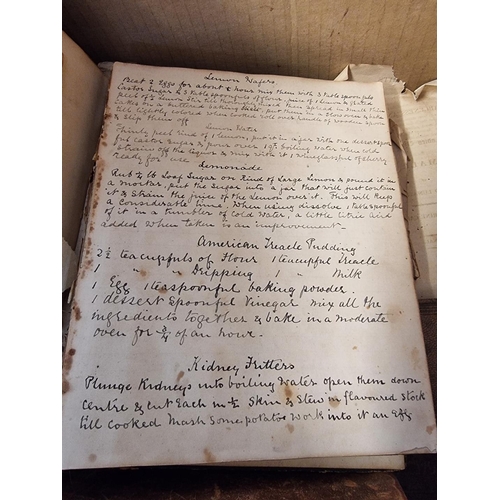 Lemon Wafers
Beat 2 Eggs for about ½ hour mix them with 3 tablespoonfuls
Castor Sugar & 3 tablespoonfuls of flour juice of 1 lemon & grated
peel of ½ Lemon Stir till thoroughly mixed then spread in small thin
cakes on a buttered baking sheet put them in a slow oven & bake
till lightly colored when cooked roll over handle of wooden spoon
& slip them off
Lemon Water
Thinly peel rind of 1 lemon, put it in a jar with one dessert spoon
ful castor Sugar & pour over 1 qt boiling water when cold
strain off the liquor & mix with it 1 wineglassful of sherry
Ready for use
Lemonade
Rub ½ lb Loaf Sugar on Rind of Large Lemon & pound it in
a mortar, put the Sugar into a jar that will just contain
it & Strain the juice of the Lemon over it. This will keep
a considerable time, When using dissolve 1 tablespoonful
of it in a tumbler of cold water, a little citric acid
added when taken is an improvement
American Treacle Pudding
2½ teacupfuls of Flour 1 teacupful Treacle
1 " " Dripping 1 " Milk
1 Egg 1 teaspoonful baking powder.
1 dessert Spoonful Vinegar mix all the
ingredients together & bake in a moderate
oven for ¾ of an hour.
Kidney Fritters
Plunge Kidneys into boiling Water open them down
centre & cut Each in ½ Skin & Stew in flavoured Stock
till cooked Mash Some potatoe work into it an Egg